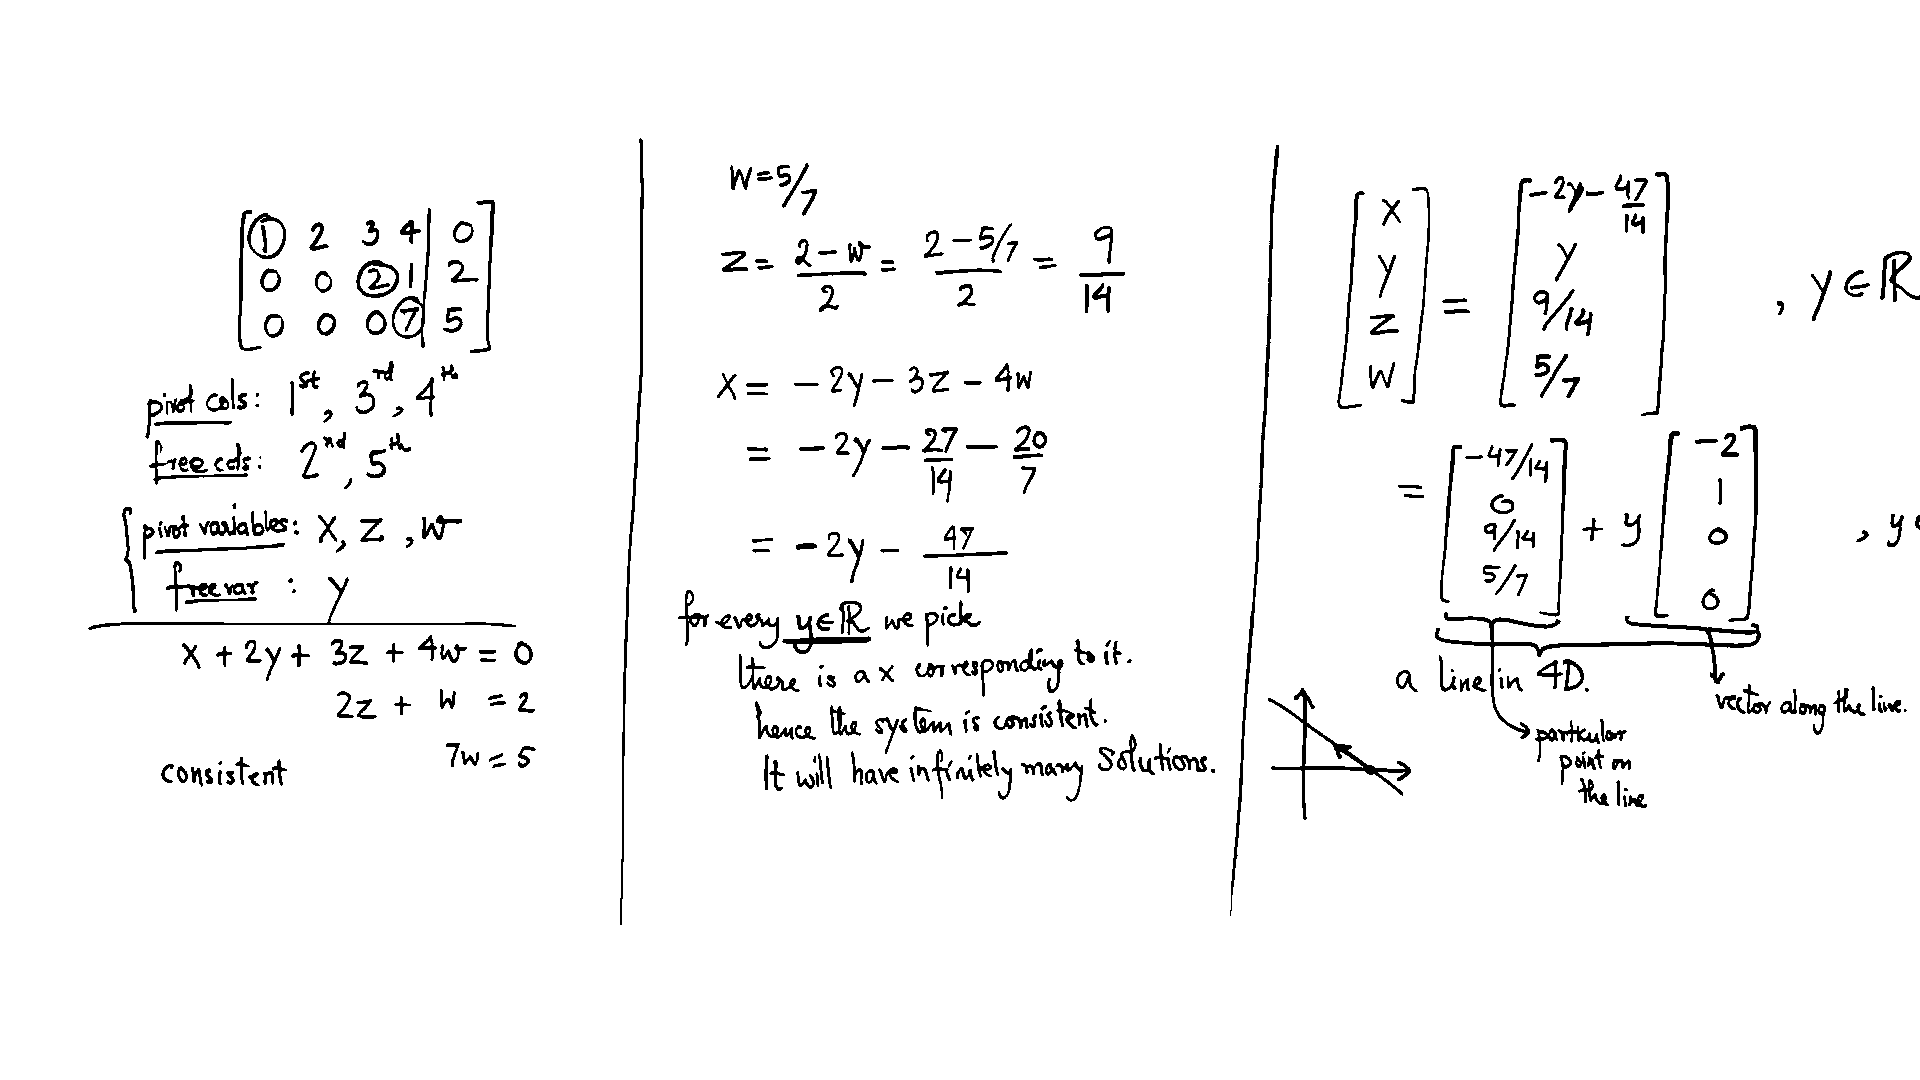 [ 1 2 3 4 | 0 ]
[ 0 0 2 1 | 2 ]
[ 0 0 0 7 | 5 ]
pivot cols: 1st, 3rd, 4th
free cols: 2nd, 5th
pivot variables: x, z, w
free var : y
x + 2y + 3z + 4w = 0
2z + w = 2
7w = 5
consistent
w = 5/7
z = (2-w)/2 = (2-5/7)/2 = 9/14
x = -2y - 3z - 4w
= -2y - 27/14 - 20/7
= -2y - 47/14
for every y∈ℝ we pick
there is a x corresponding to it.
hence the system is consistent.
It will have infinitely many solutions.
[ x ] = [ -2y - 47/14 ] , y∈ℝ
[ y ] [ y ]
[ z ] [ 9/14 ]
[ w ] [ 5/7 ]
= [ -47/14 ] + y [ -2 ] , y∈
[ 0 ] [ 1 ]
[ 9/14 ] [ 0 ]
[ 5/7 ] [ 0 ]
a line in 4D.
vector along the line.
particular
point on
the line